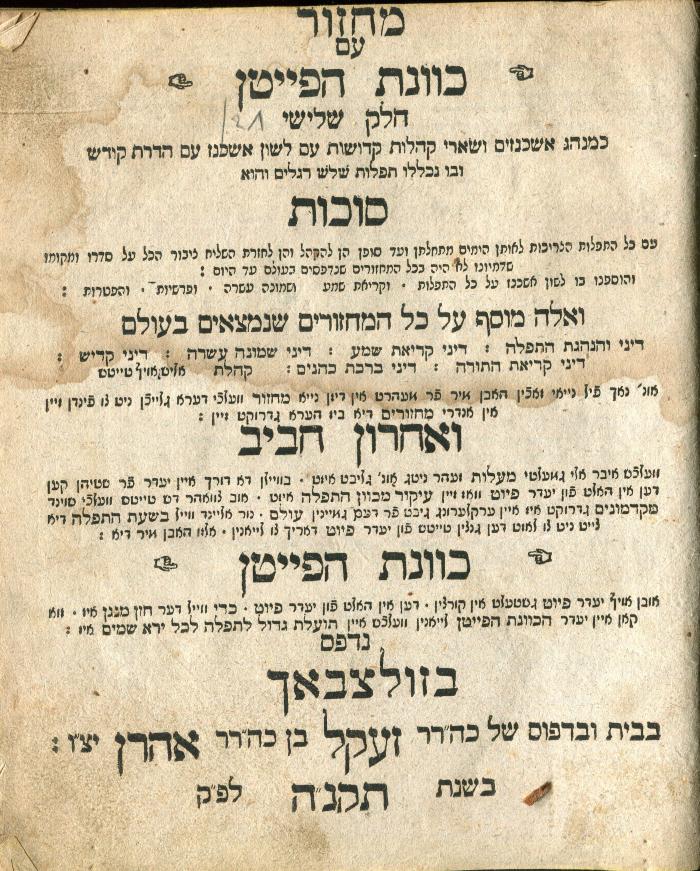 מחזור
עם
כוונת הפייטן
חלק שלישי
כמנהג אשכנזים ושארי קהלות קדושות עם לשון אשכנז עם הדרת קודש
ובו נכללו תפלות שלש רגלים והוא
סוכות
עם כל התפלות הצריכות לאותן הימים מתחלתן ועד סופן הן להקהל והן לחזרת השליח ציבור הכל על סדרו ומקומו
שדמיונו לא היה בכל המחזורים שנדפסים בעולם עד היום :
והוספנו בו לשון אשכנז על כל התפלות ׳ וקריאת שמע ושמונה עשרה ׳ ופרשיות ׳ והפטרות :
ואלה מוסף על כל המחזורים שנמצאים בעולם
דיני והנהגת התפלה : דיני קריאת שמע : דיני שמונה עשרה : דיני קדיש :
דיני קריאת התורה : דיני ברכת כהנים : קהלת אליס אויף טייטס
אונ׳ נאך פיל נייאי זאכין האבן מיר פר מעהרט אין דיזן נייא מחזור וועלכי דערא גלייכן ניט צו פינדן זיין
אין אנדרי מחזורים דיא ביז הערא גדרוקט זיין :
ואחרון חביב
וועלכס איבר אלי געמעלטי מעלות זעהר ניטג אונ׳ גליבט איזט ׳ בווייזן דא דורך איין יעדר פר שטיהן קען
דען אין האלט פון יעדר פיוט וואז זיין עיקיר מכוון התפלה איזט ׳ אוב צוואהר דס טייטס וועלכי סוינד
מקדמונים גדרוקט איז איין ערקלערונג גיבט פר דעם גמיינין עולם ׳ נור אליינד ווייל בשעת התפלה דיא
צייט ניט צו לאזט דען גנצין טייטס פון יעדר פיוט דאריך צו לייאנין ׳ אלזו האבן מיר דיא :
כוונת הפייטן
אובן אויף יעדר פיוט גשטעלט אין קורצין ׳ דען אין האלט פון יעדר פיוט ׳ כדי ווייל דער חזן מנגן איז ׳ זוא
קאן איין יעדר הכוונת הפייטן לייאנין וועלכס איין תועלת גדול לתפלה לכל ירא שמים איז :
נדפס
בזולצבאך
בבית ובדפוס של כה״רר זעקל בן כה״רר אהרן יצ״ו :
בשנת תקנ״ה לפ״ק